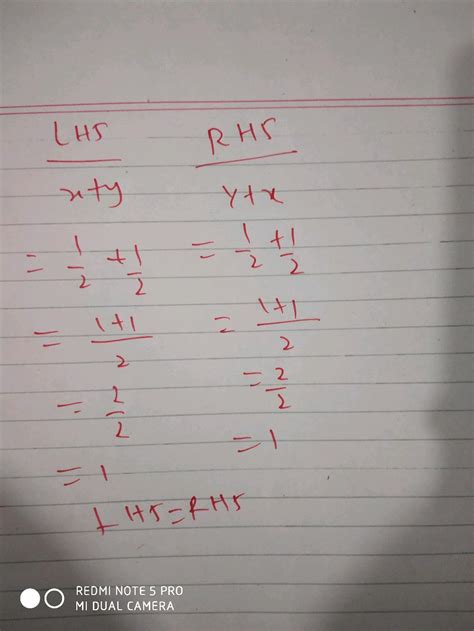 LHS RHS
x+y y+x
= 1/2 + 1/2 = 1/2 + 1/2
= 1+1/2 = 1+1/2
= 2/2 = 2/2
= 1 = 1
LHS = RHS
REDMI NOTE 5 PRO
MI DUAL CAMERA